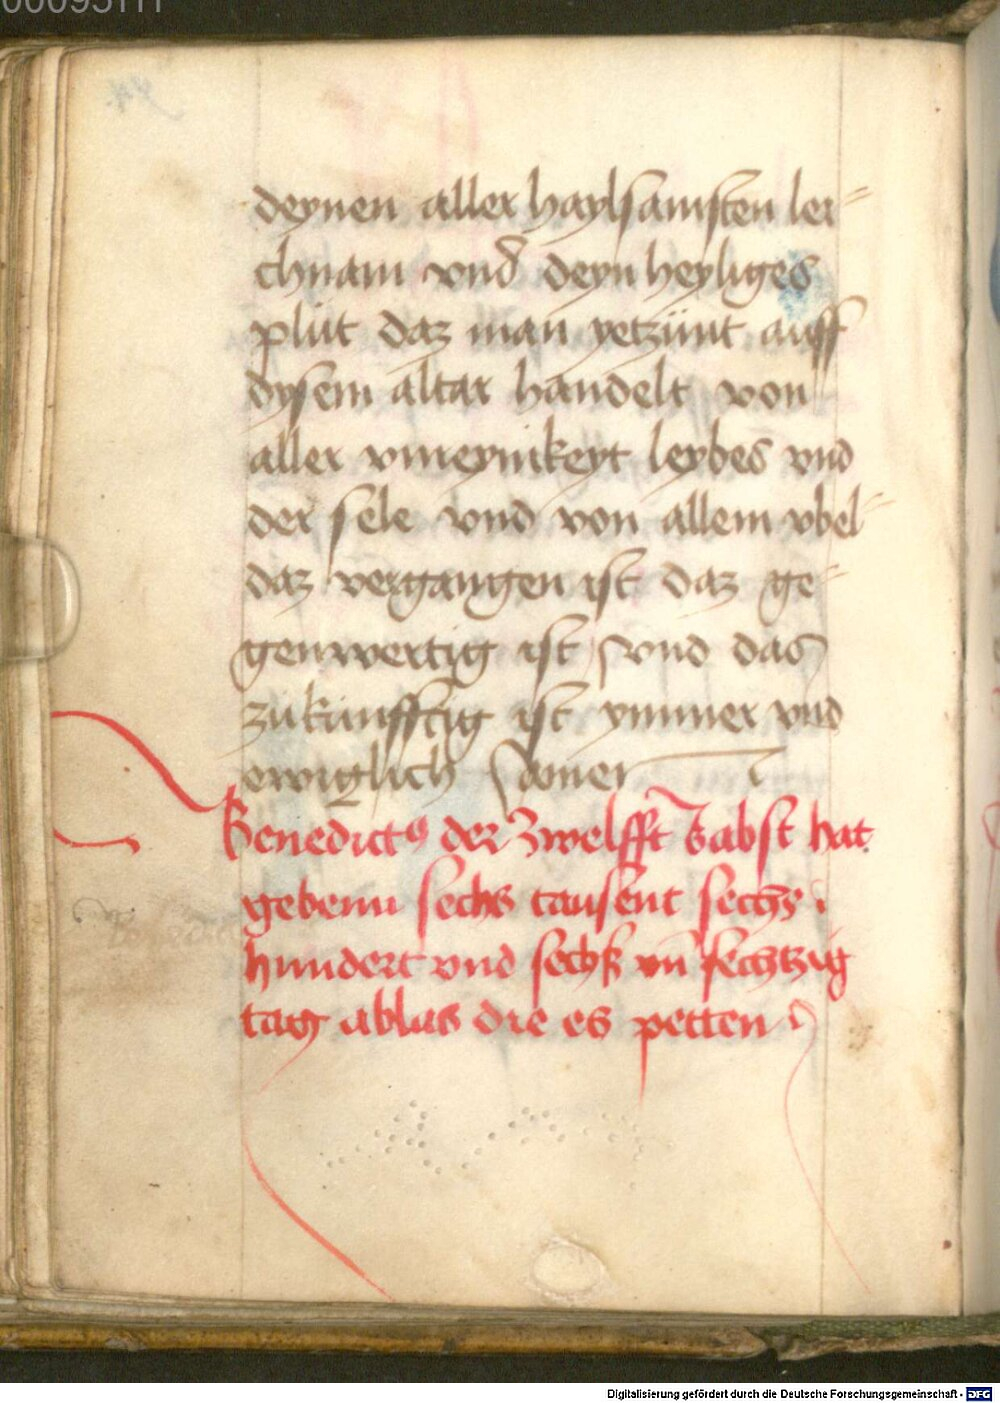 00095111
deynen aller haylsamsten ler-
chnam vnd deyn heyliges
plut daz man yetzunt auff
dysem altar handelt von
aller vnreynikeyt leybes vnd
der sele vnd von allem vbel-
daz vergangen ist daz ge-
genwertig ist vnd das
zukunfftig ist ymmer vnd
ewiglich Amen
Benedictꝰ der Zwelfft babst hat
gebenn sechs tausent sechs
hundert vnd sechß vn̄ sechtzig
tag ablas die es petten
Digitalisierung gefördert durch die Deutsche Forschungsgemeinschaft - DFG